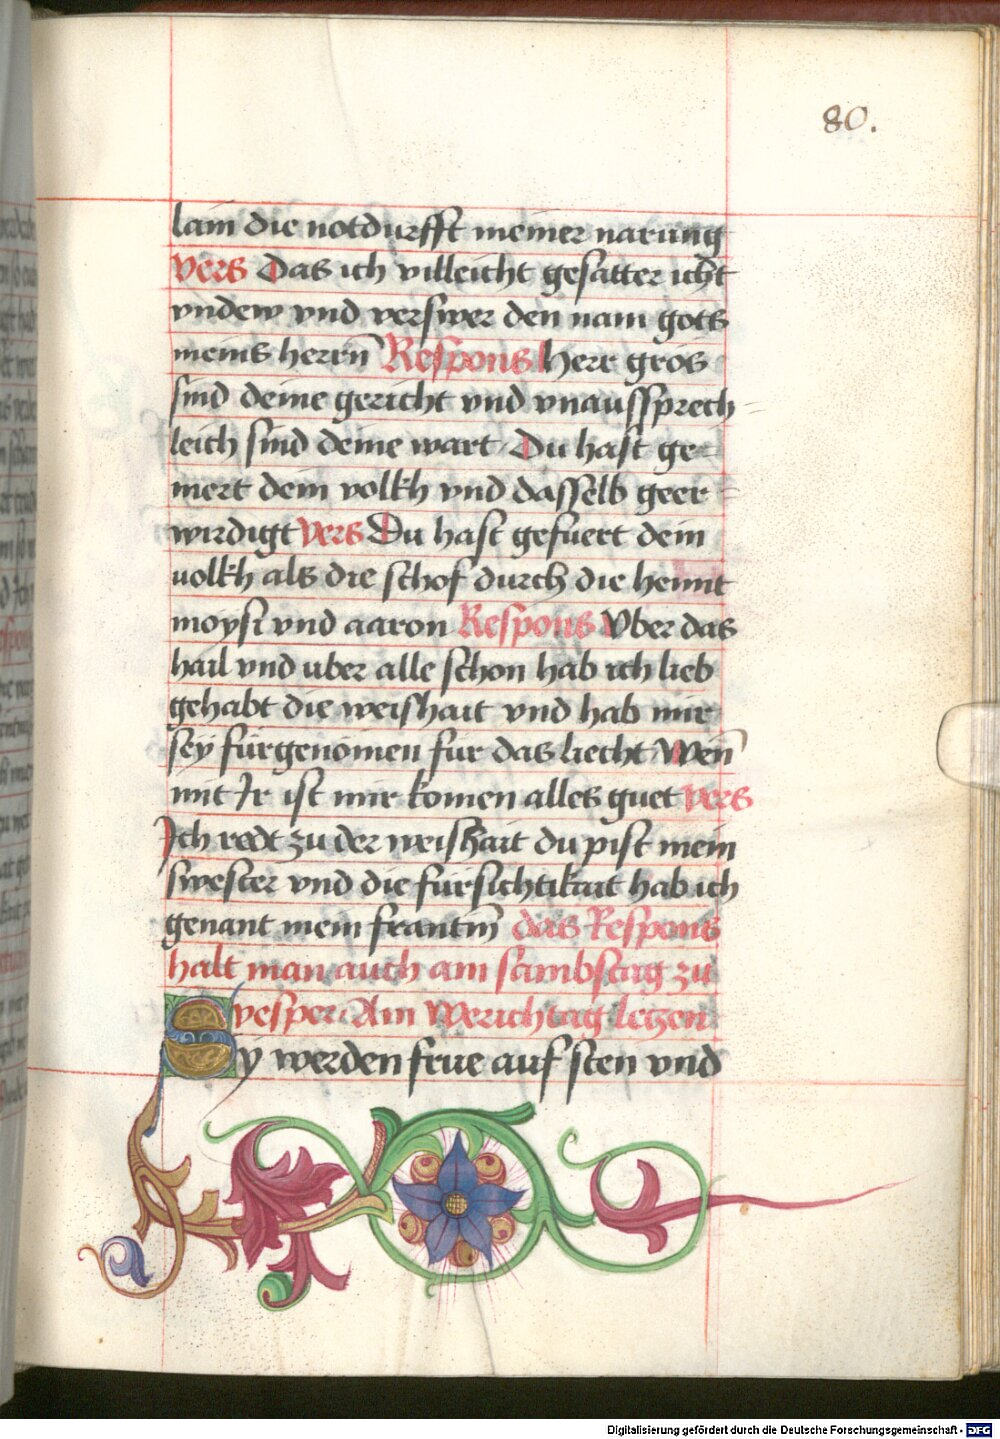 80.
lain die notdurfft meiner narung
Vers Das ich villeicht gesatter icht
vndew vnd verswer den nam gots
meins herrn̄ Respons Herr gros
sind deine gericht vnd vnaussprech-
leich sind deine wart Du hast ge-
mert dein volkh vnd dasselb geer-
wirdigt Vers Du hast gefuert dein
volkh als die schof durch die hennt
moysi vnd aaron Respons Vber das
hail vnd uber alle schon hab ich lieb
gehabt die weishait vnd hab mir
sey fürgenomen für das liecht Wen̄
mit Ir ist mir komen alles guet vers
Ich redt zu der weishait du pist mein
swester vnd die fürsichtikait hab ich
genant mein frantin̄ das Respons
halt man auch am sambstag zu
vesper Am Werichtag lezen
Sy werden frue auf sten vnd
Digitalisierung gefördert durch die Deutsche Forschungsgemeinschaft - DFG